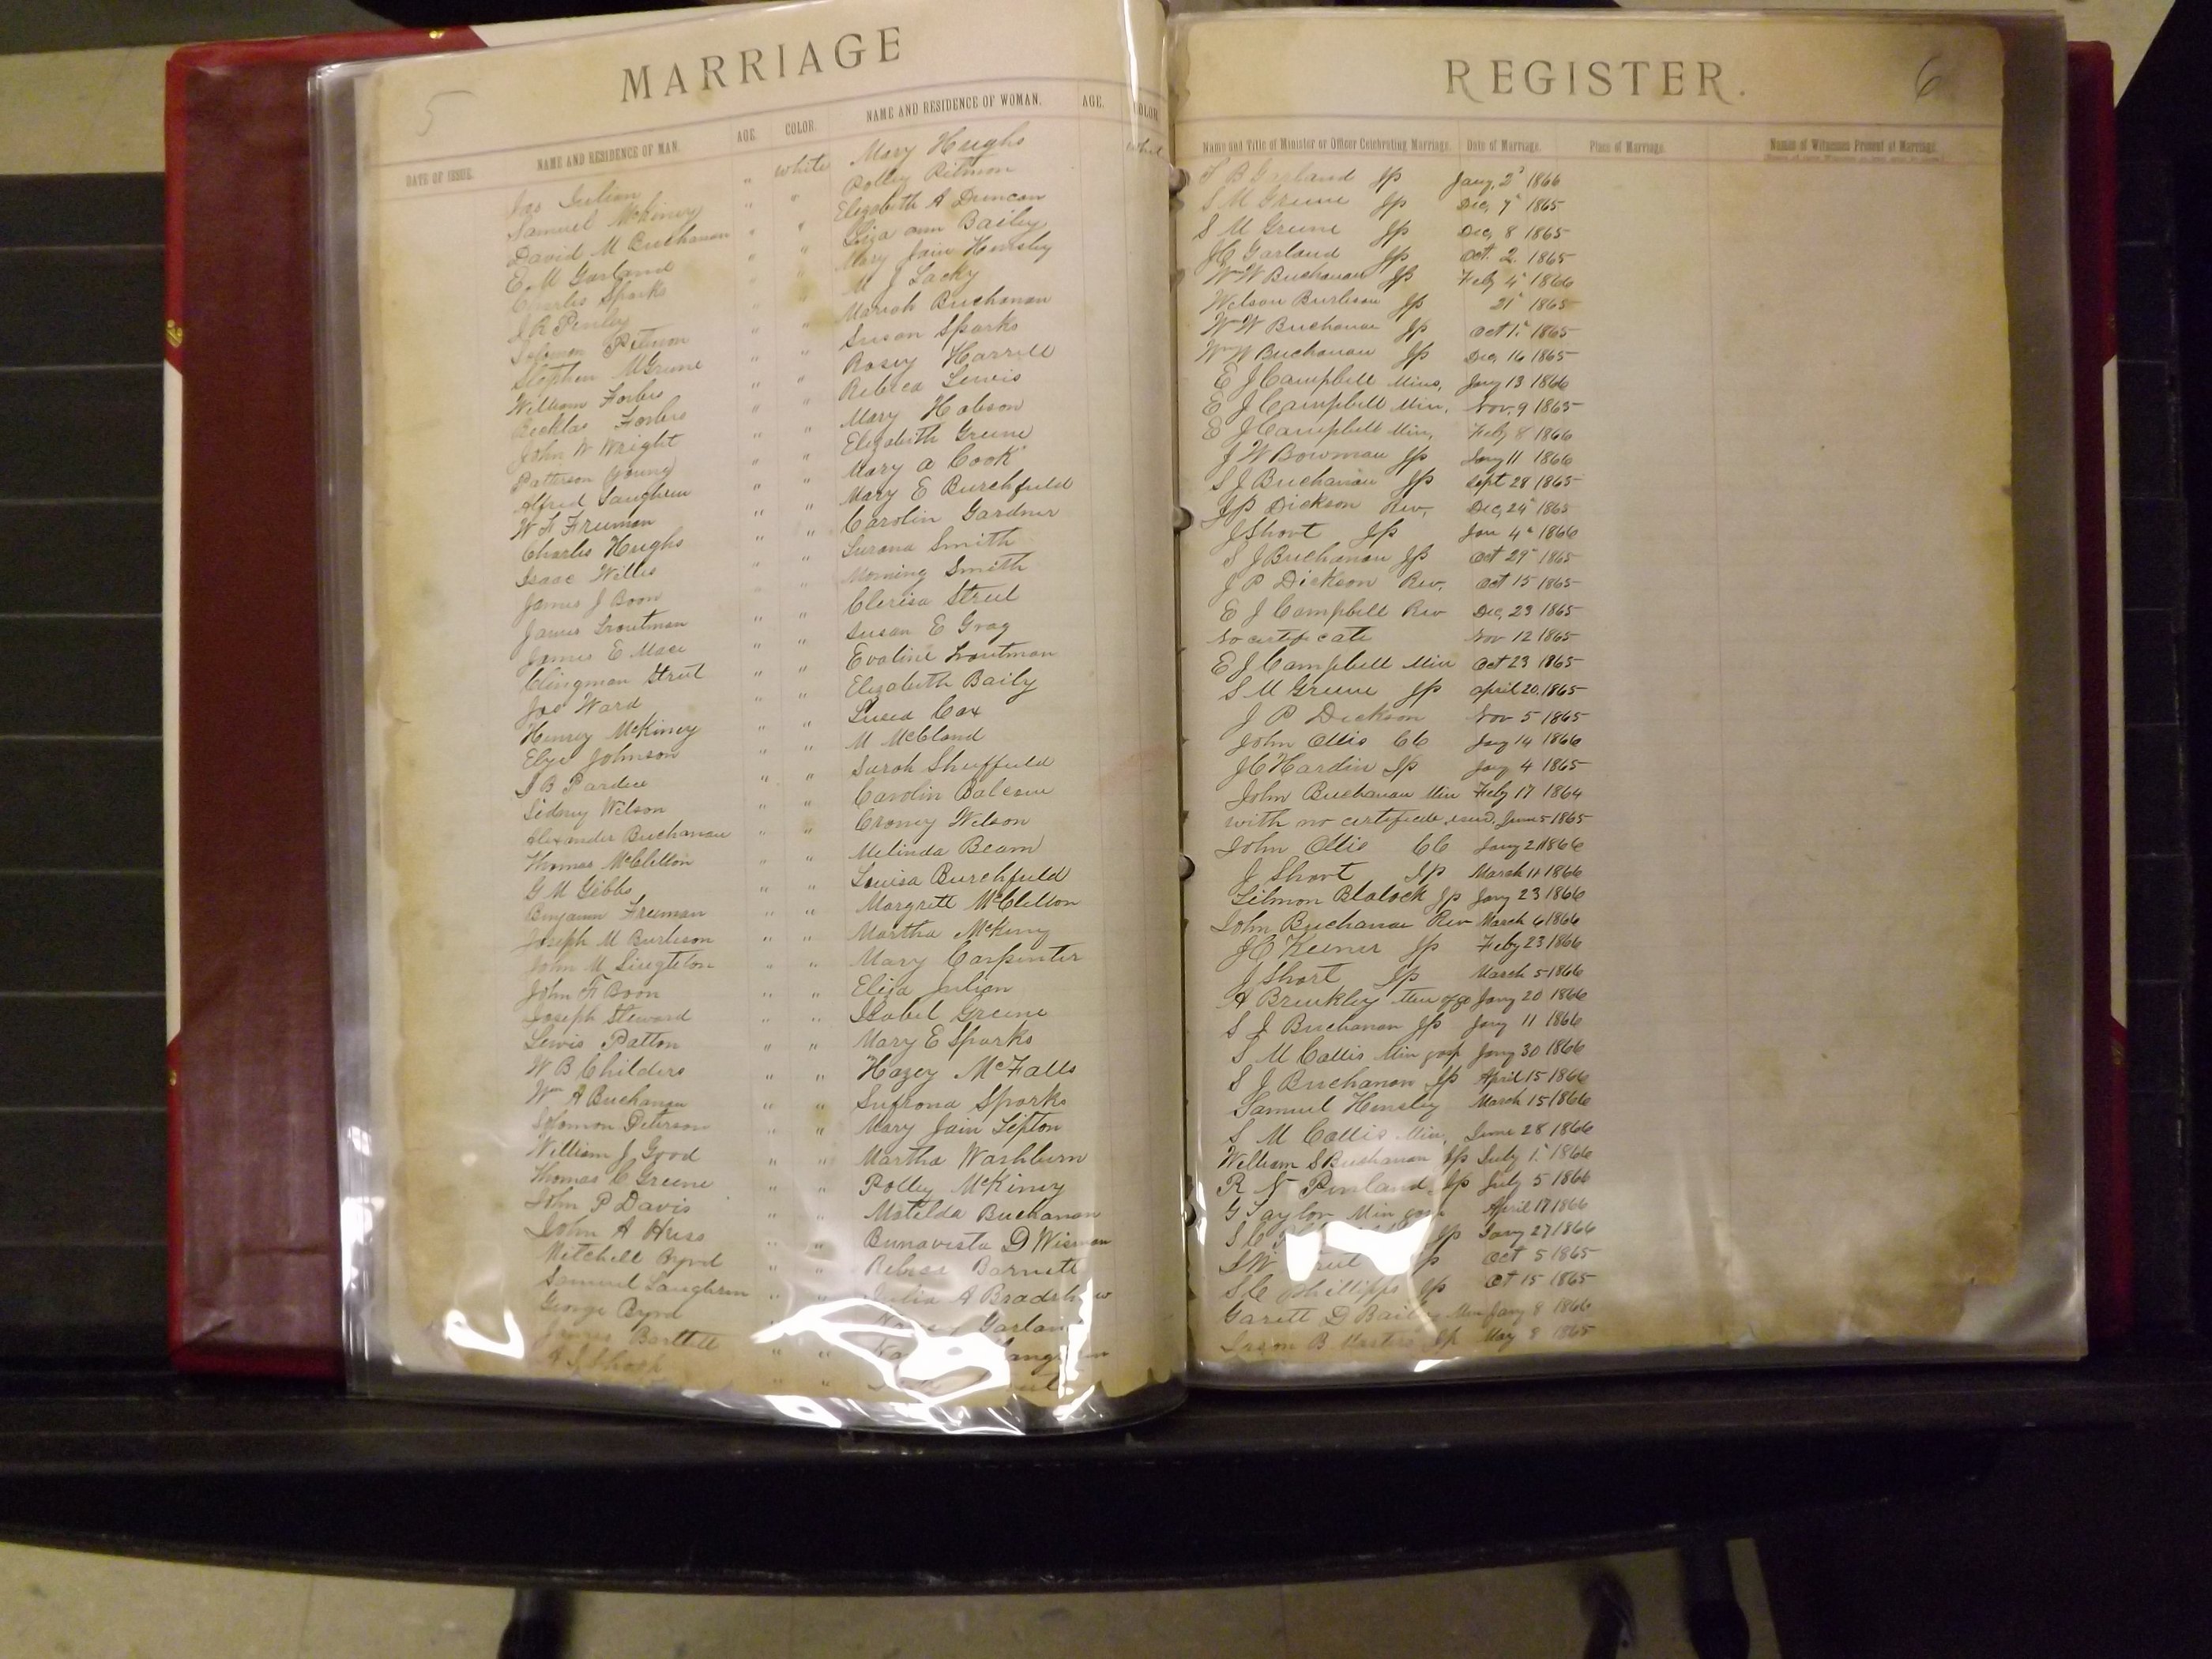 5
MARRIAGE
DATE OF ISSUE. NAME AND RESIDENCE OF MAN. AGE. COLOR. NAME AND RESIDENCE OF WOMAN. AGE. COLOR.
Jas Julian white Mary Hughs
Samuel McKiney " " Polley Pitmon
David M Buchanan " " Elizabeth A Duncan
E M Garland " " Liza ann Bailey
Charles Sparks " " Mary Jain Hensley
J R Penley " " M J Lacky
Solomon Pitmon " " Mariah Buchanan
Stephen M Greene " " Susan Sparks
William Forbes " " Rosey Harrell
Forbes " " Rebeca Lewis
John W Wright " " Mary Hobson
Patterson Young " " Elizabeth Greene
Alfred Laughren " " Mary a Cook
W F Freeman " " Mary E Burchfield
Charles Hughs " " Carolin Gardner
Isaac Willis " " Surona Smith
James J Boon " " Morning Smith
James Troutman " " Clerisa Street
James E Mace " " Susan E Grag
Clingman Street " " Evaline Troutman
Jas Ward " " Elizabeth Baily
Henrey McKiney " " Cox
Johnson " " M McCloud
S B Pardue " " Sarah Sheffield
Sidney Wilson " " Carolin
Alexander Buchanan " " Croney Wilson
Thomas McClellon " " Melinda Beam
G M Gibbs " " Louisa Burchfield
Benjamin Freeman " " Margrett McClellon
Joseph M Burleson " " Martha McKiney
John M Singleton " " Mary Carpenter
John F Boon " " Eliza Julian
Joseph Steward " " Isabel Greene
Lewis Patton " " Mary E Sparks
W B Childers " " Hazey McFalls
Wm A Buchanan " " Sufrona Sparks
Solomon Peterson " " Mary Jain Tipton
William J Good " " Martha Washburn
Thomas C Greene " " Polley McKiney
John P Davis " " Matilda Buchanan
John A Huss " " Bunavista D Wiseman
Mitchell Byrd " " Barnett
Samuel Laughren " " Julia A Bradshaw
George Byrd Garland
James Bartlett " "
" "
REGISTER.
6
Name and Title of Minister or Officer Celebrating Marriage. Date of Marriage. Place of Marriage. Names of Witnesses Present at Marriage.
Garland Jp Jany, 2" 1866
S M Greene Jp Dec, 7" 1865
S M Greene Jp Dec, 8 1865
JC Garland Jp Oct. 2. 1865
Wm W Buchanan Jp Feby 4" 1866
Wilson Burleson Jp 21" 1865
Wm W Buchanan Jp Oct 1" 1865
Wm W Buchanan Jp Dec, 16 1865
E J Campbell Mins, Jany 13 1866
E J Campbell Min, Nov. 9 1865
E J Campbell Min, Feby 8 1866
J W Bowman Jp Jany 11 1866
S J Buchanan Jp Sept 28 1865
J P Dickson Rev, Dec, 24" 1865
J Short Jp Jan 4" 1866
S J Buchanan Jp Oct 29" 1865
J P Dickson Rev, Oct 15 1865
E J Campbell Rev Dec, 23 1865
No certificate Nov 12 1865
E J Campbell Min Oct 23 1865
S M Greene Jp april 20. 1865
J P Dickson Nov 5 1865
John Ollis CC Jany 14 1866
JC Hardin Jp Jany 4 1865
John Buchanan Min Feby 17 1864
with no certificate June 5 1865
John Ollis CC Jany 21 1866
J Short Jp March 11 1866
Tilmon Blalock Jp Jany 23 1866
John Buchanan Rev March 6 1866
JC Keener Jp Feby 23 1866
J Short Jp March 5 1866
A Brinkley Jany 20 1866
S J Buchanan Jp Jany 11 1866
S M Collis Min gosp Jany 30 1866
S J Buchanan Jp April 15 1866
Samuel Hensley March 15 1866
S M Collis Min, June 28 1866
William S Buchanan Jp July 1" 1866
R N Penland Jp July 5 1866
G Taylor Min April 17 1866
Jp Jany 27 1866
Oct 5 1865
S C Phillipps Jp Oct 15 1865
Garett D Bailey Min Jany 8 1866
B Masters Jp May 8 1865